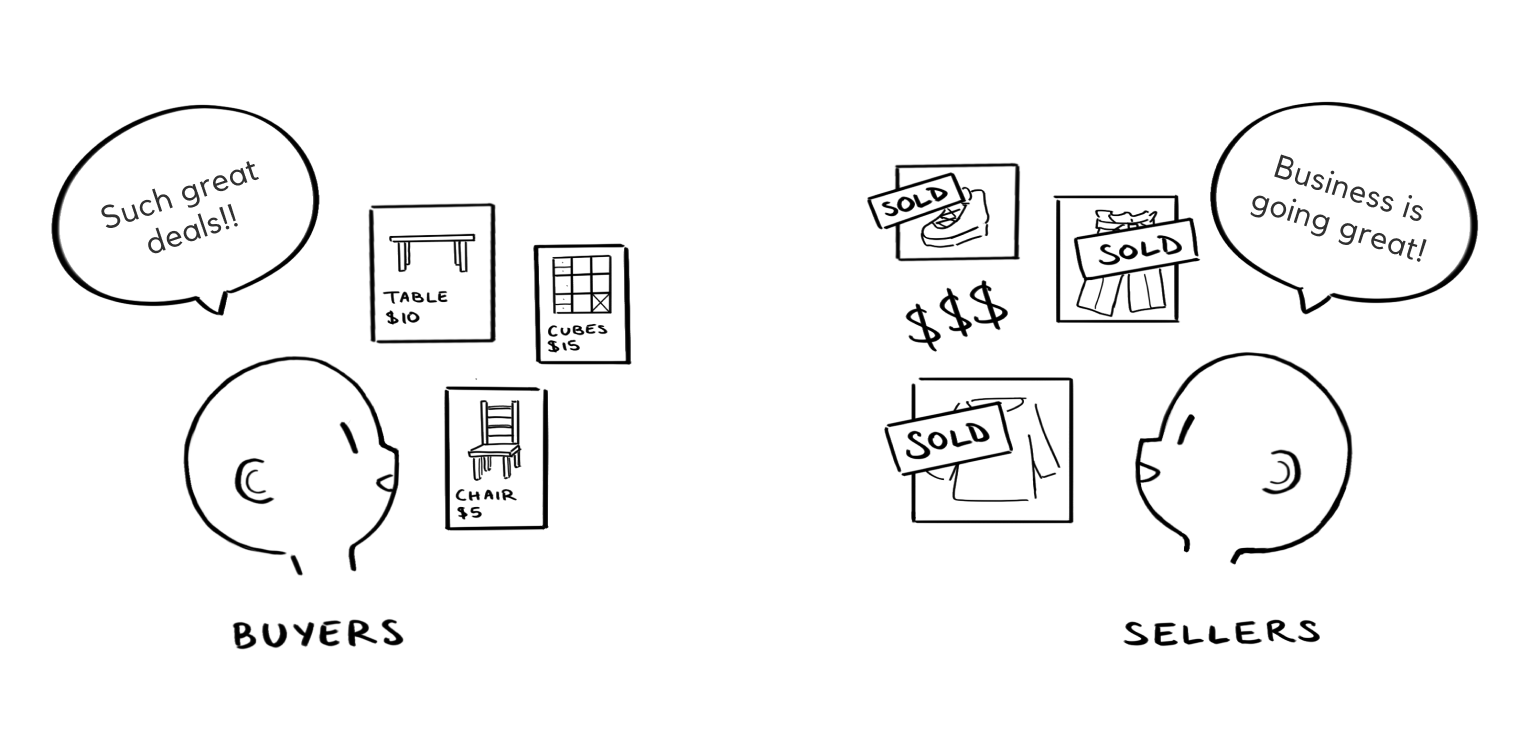 Such great
deals!!
TABLE
$10
CUBES
$15
CHAIR
$5
BUYERS
SOLD
SOLD
$$$
SOLD
Business is
going great!
SELLERS